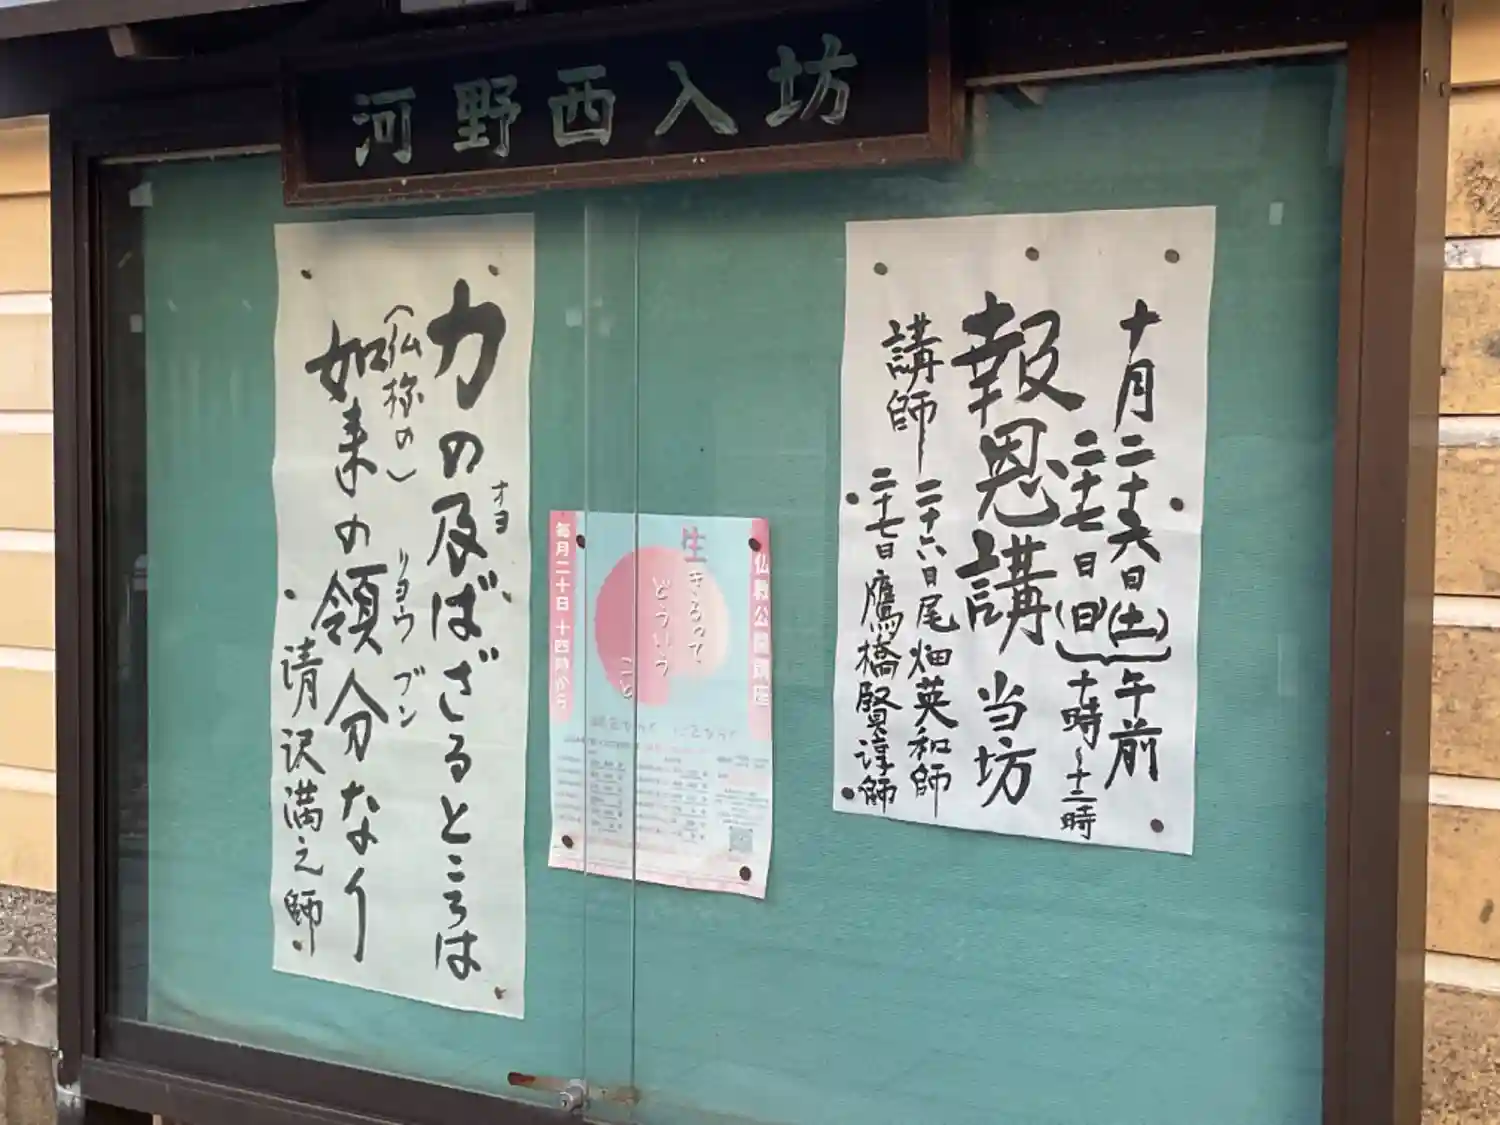 河野西入坊
十月二十六日(土)午前
二十七日(日)十時〜十二時
報恩講 当坊
講師 二十六日尾畑英和師
二十七日鷹橋賢淳師
仏教公開講座
生きるって、
どういう
こと
毎月二十日 十四時から
力の及ばざるところは
オヨ
(仏様の)
如来の領分なり
リョウブン
清沢満之師